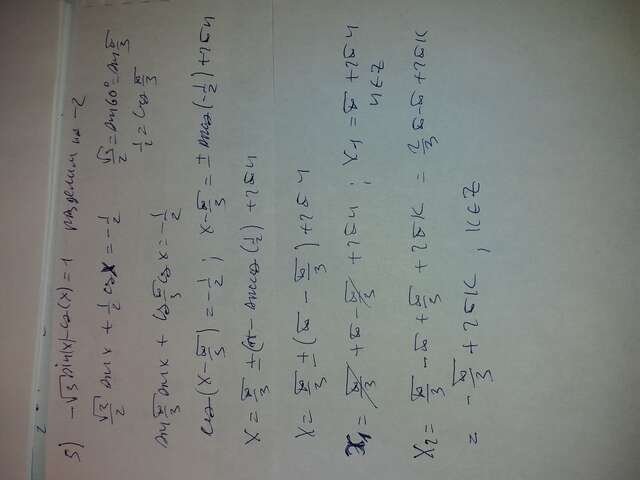 5) -√3 sin(x)-cos(x)=1 разделим на -2
√3/2 sin x + 1/2 cos x = -1/2   √3/2 = sin 60° = sin π/3
1/2 = cos π/3
sin π/3 sin x + cos π/3 cos x = -1/2
cos(x-π/3) = -1/2 ; x-π/3 = ± arccos(-1/2)+2πn
x = π/3 ± (π - arccos(1/2)) + 2πn
x = π/3 ± (π - π/3) + 2πn
x1 = π/3 + π - π/3 + 2πn ; x1 = π + 2πn
n∈Z
x2 = π/3 - π + π/3 + 2πk = 2/3 π - π + 2πk
= - π/3 + 2πk , k∈Z